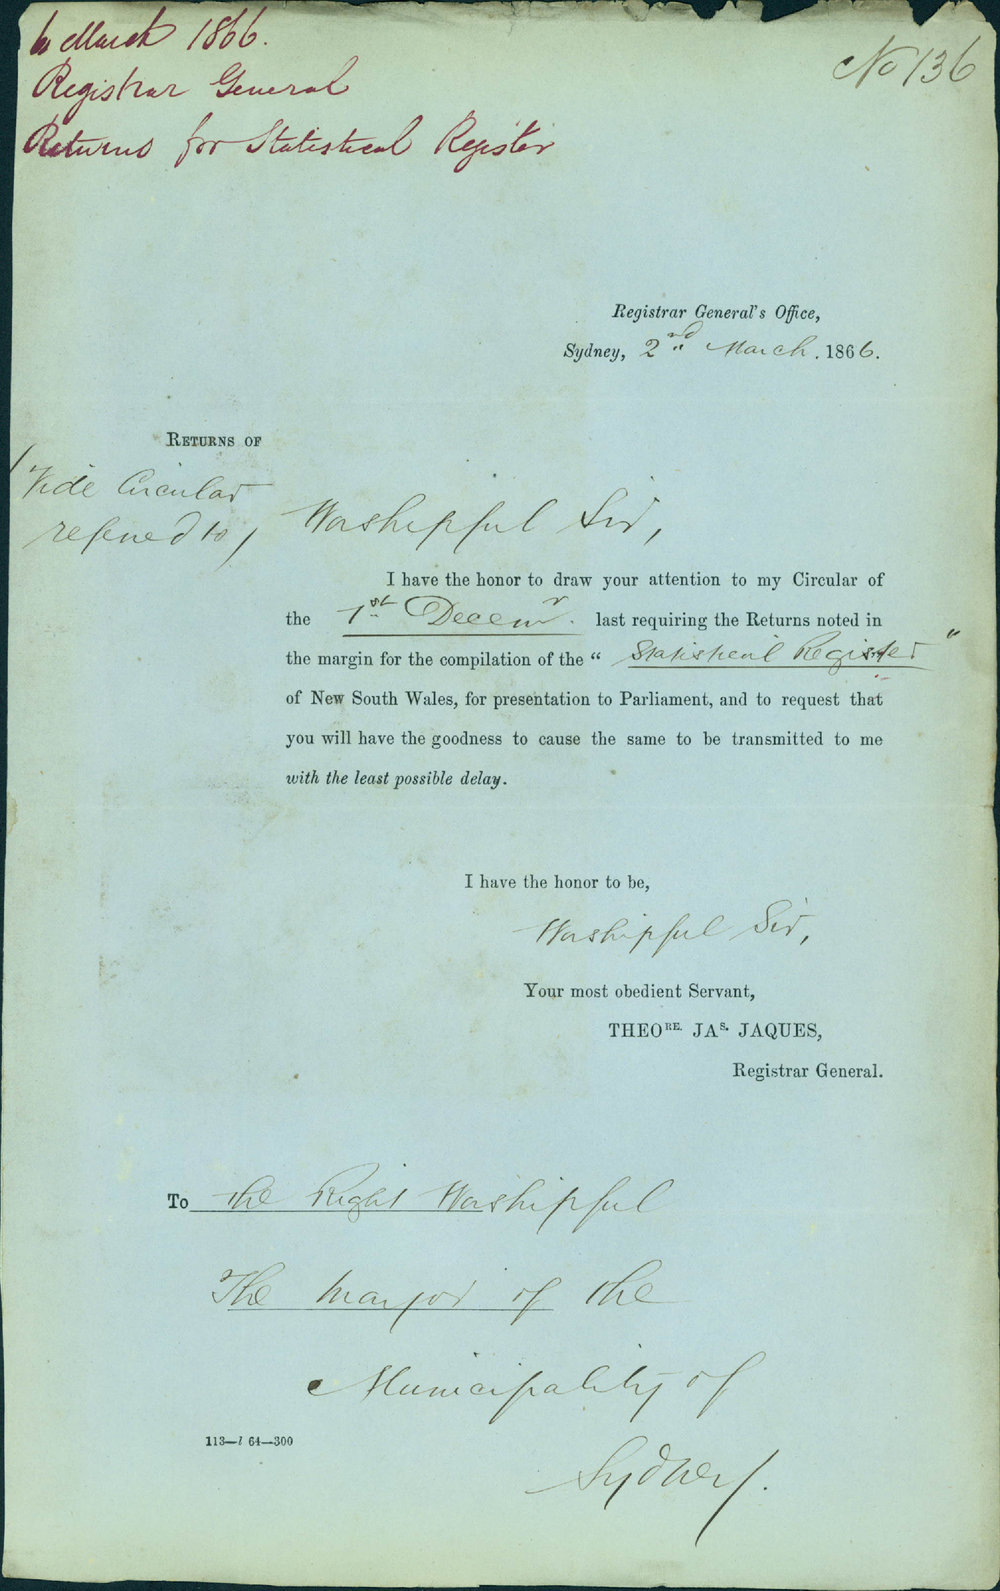 6 March 1866.
Registrar General
Returns for Statistical Register
No 136
Registrar General's Office,
Sydney, 2nd March. 1866.
RETURNS OF
Vide Circular
referred to/
Worshipful Sir,
I have the honor to draw your attention to my Circular of
the 1st Decemr. last requiring the Returns noted in
the margin for the compilation of the “ Statistical Register ”
of New South Wales, for presentation to Parliament, and to request that
you will have the goodness to cause the same to be transmitted to me
with the least possible delay.
I have the honor to be,
Worshipful Sir,
Your most obedient Servant,
THEORE. JAS. JAQUES,
Registrar General.
To the Right Worshipful
The Mayor of the
Municipality of
113—l 64—300
Sydney/.